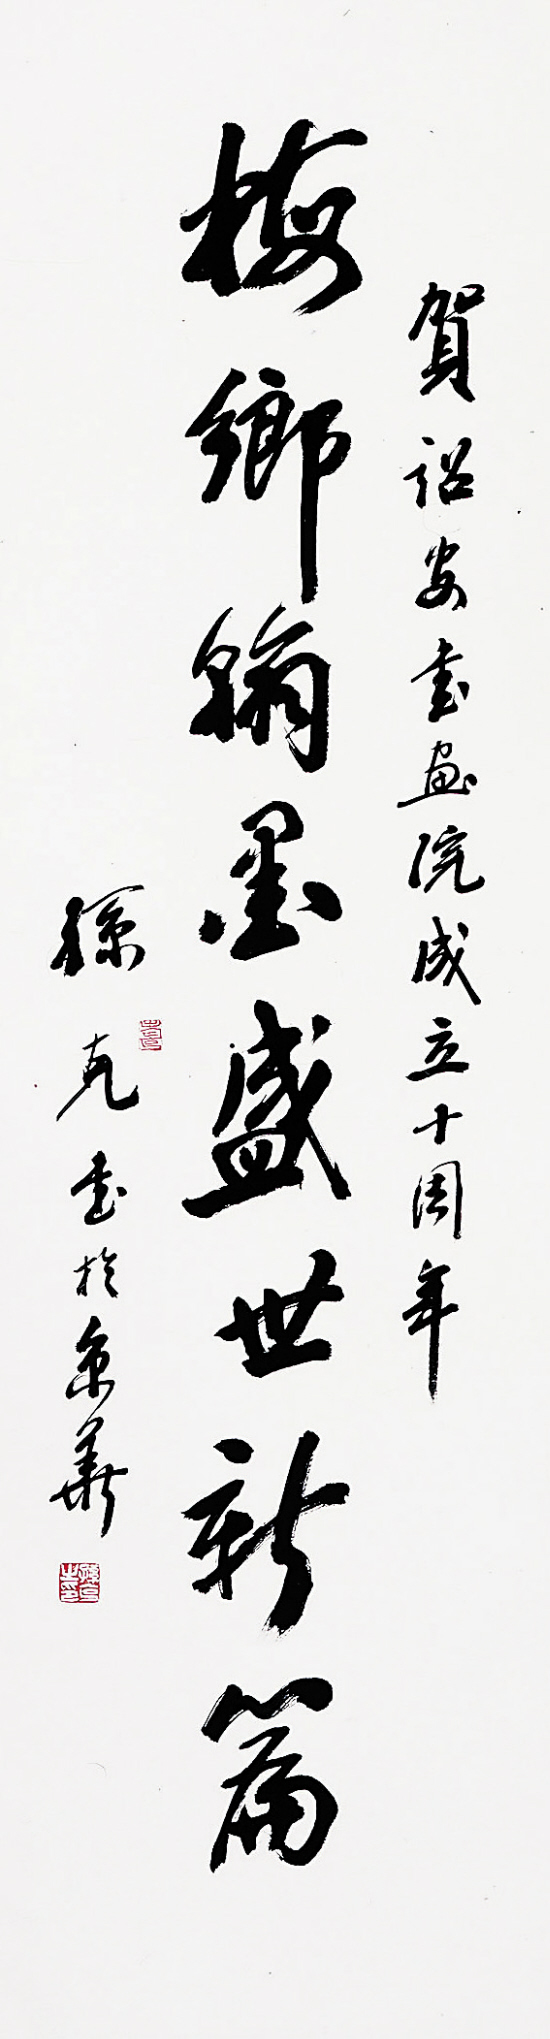 賀詔安書画院成立十周年
梅鄉翰墨盛世新篇
孫克书於京華